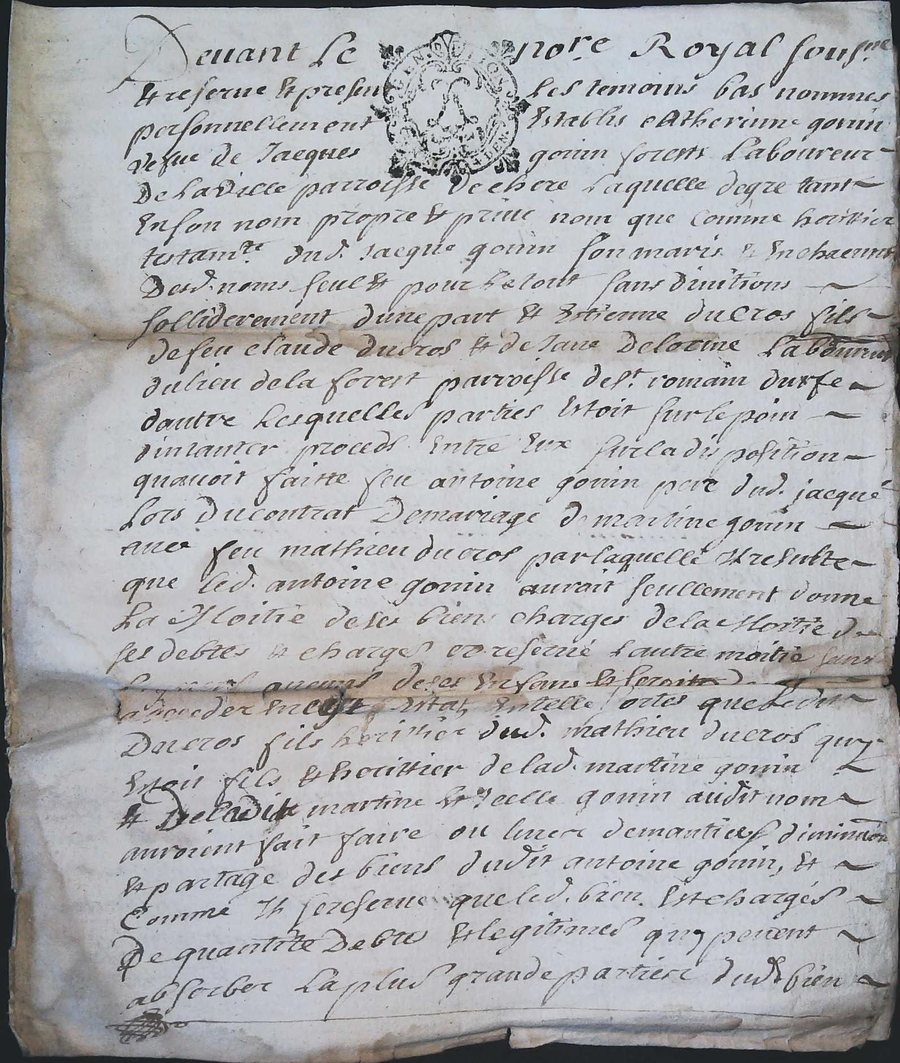 Devant Le nore Royal sousne
et reserve et presen Les temoins bas nommes
personnellement Establis catherinne gonin
vefue de Jacques gonin forests Laboureur
De La Ville parroisse De chere Laquelle degre tant
En son nom propre et prive nom que comme herittier
testamte dud. Jacque gonin son maris et En chacun
Desd. noms seul et pour Le tout sans divitions
sollideremt dune part et Estienne ducros fils
de feu claude ducros et de Delorme Laboureur
du lieu de la forest parroisse de st. romain durfe
dautre Lesquelles parties Estoit sur le poin
dintanter proceds Entre Eux sur la disposition
quavoit faitte feu antoine gonin pere dud. jacque
Lors Du contrat De mariage de martine gonin
avec feu mathieu ducros par laquelle Il resulte
que led. antoine gonin auroit seullement donne
La Moitie de ses biens charges de la Moitie de
ses debtes et charges et reserve Lautre moitie sans
aucuns de ses Enfans et seroit
decede En cest Estat, Entelle sortes que Ledit
Ducros fils herittier dud. mathieu ducros quy
Estoit fils et herittier de lad. martine gonin
et De ladit martine et Icelle gonin audit nom
auroient fait faire ou
et partage des biens dudit antoine gonin, et
Comme Il se reserve que led. bien Est charges
De quantite Debte et legitimes quy peuvent
absorber La plus grande partie dud. bien